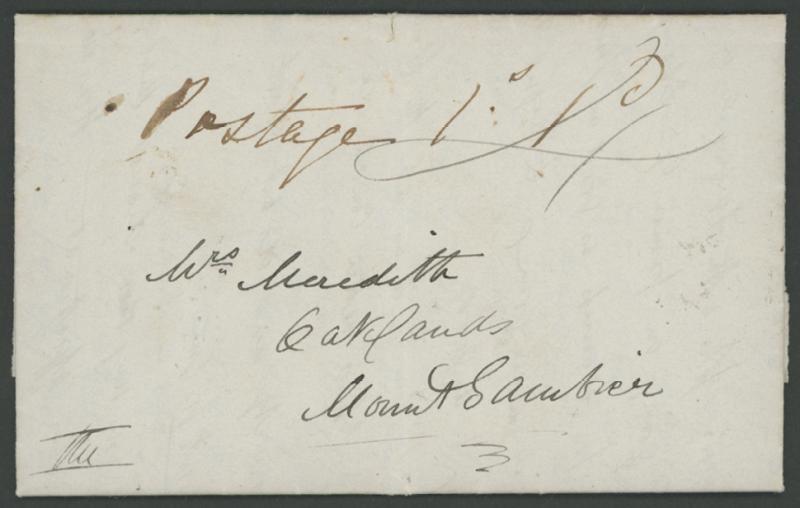 Postage 1.s 1 D
Mrs Meredith
Oaklands
Mount Gambier